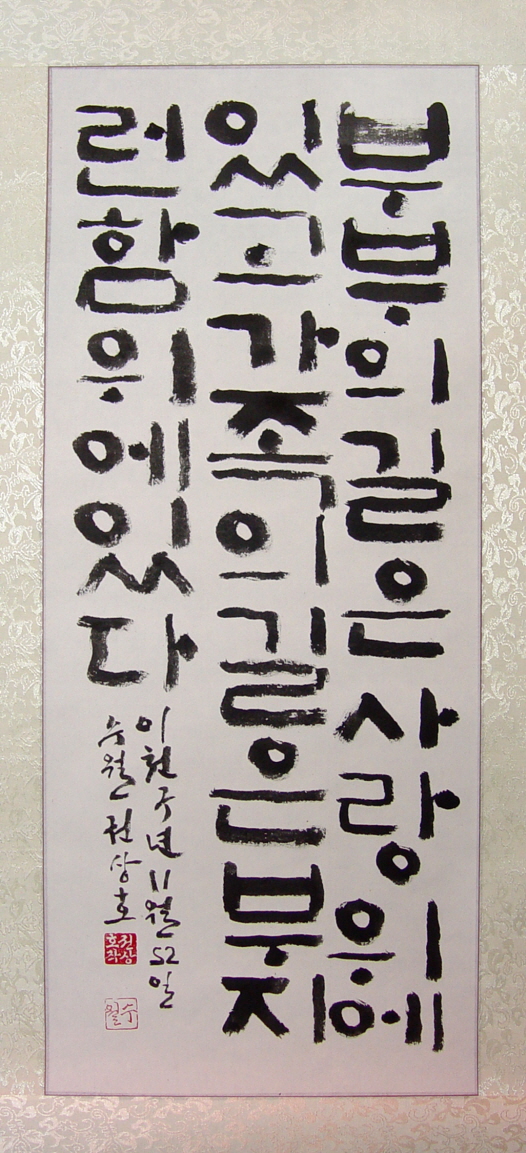 부부의길은사랑위에
있고가족의길은부지
런함위에있다
이천구년11월 일
수월 권상호
권상호작
수월